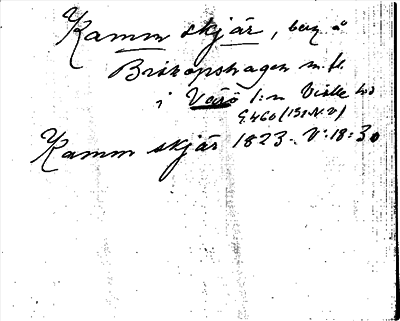 Kamm skjär, berg å
Biskopshagen m.fl.
i Värö s:n Viske hd
G.460 (151.N.V)
Kamm skjär 1823. V:18:30